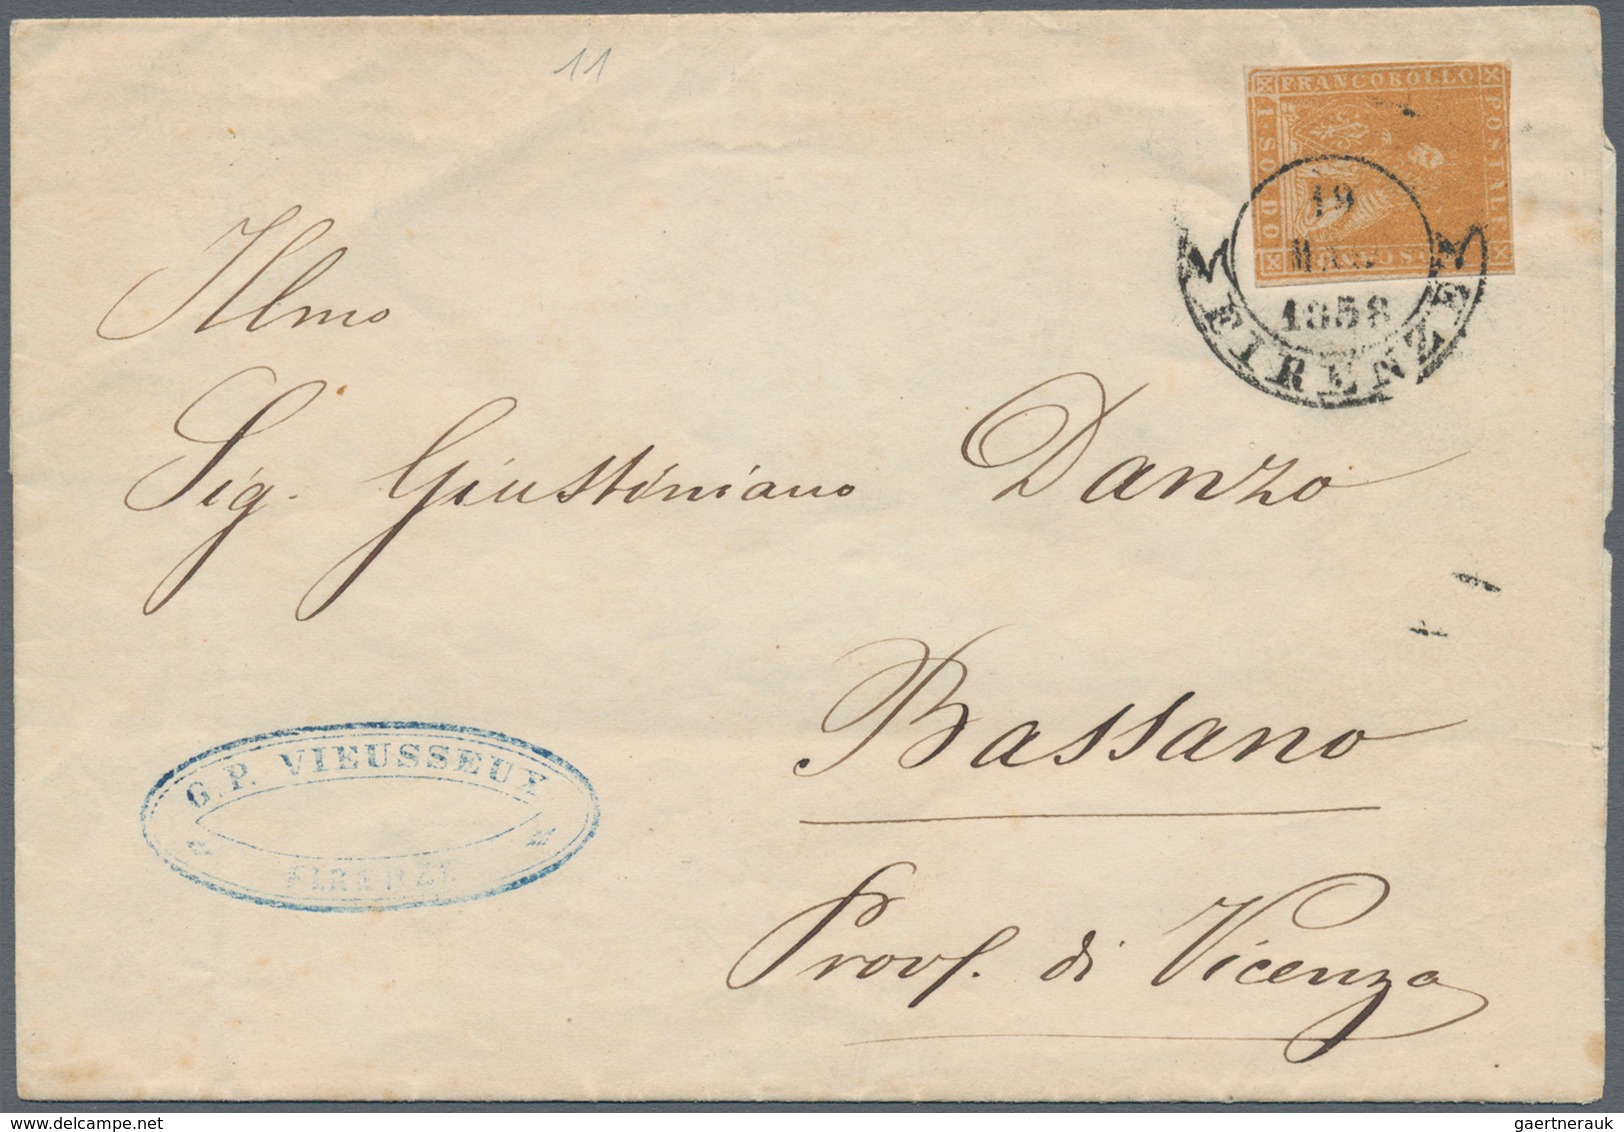 11
FRANCOBOLLO
POSTALE
1·SOLDO
19
1858
FIRENZE
Ilmo
Sig. Giustiniano Danzo
Bassano
Provˢ. di Vicenza
G. P. VIEUSSEUX
FIRENZE
delcampe.net
gaertnerauk